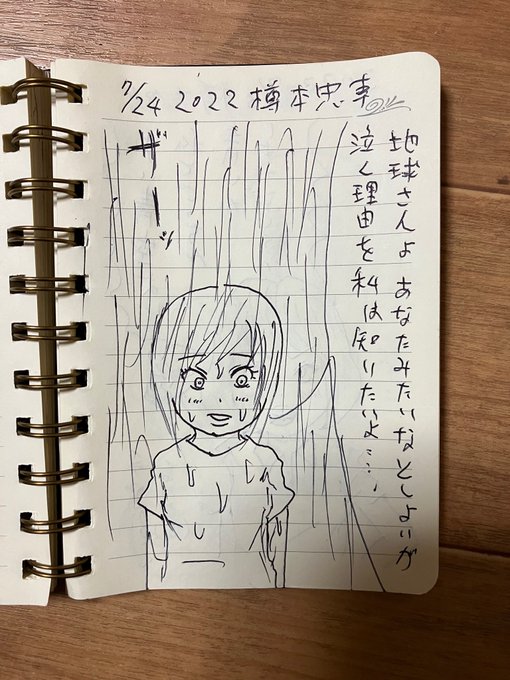 7/24 2022 樽本忠幸
地球さんよ あなたみたいなとしよいが
泣く理由を私は知りたいよ……
ザーッ